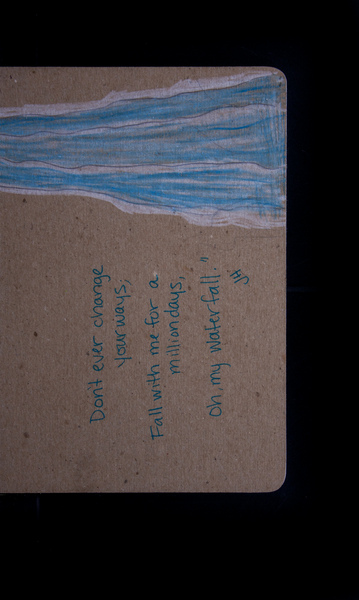 Don't ever change
your ways,
Fall with me for a
million days,
Oh, my waterfall."
JH